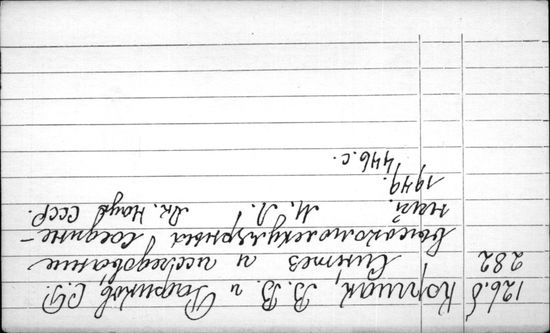 126.8 Коршак, В.В. и Рафиков, С.Р.
282 Синтез и исследование
высокомолекулярных соедине-
ний.
М. Л. Ак. Наук СССР.
1949.
446 с.